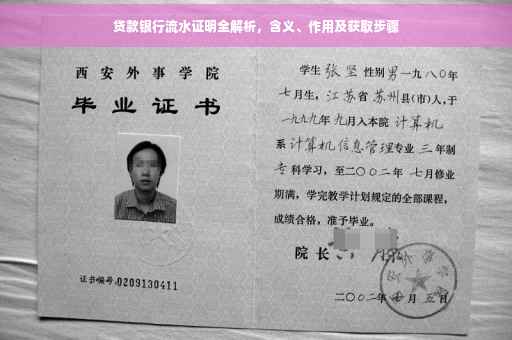 贷款银行流水证明全解析，含义、作用及获取步骤
西安外事学院
毕业证书
证书编号:0209130411
学生 张坚 性别 男 一九八〇年
七月生，江苏省 苏州县(市)人,于
一九九九年 九月入本院 计算机
系 计算机信息管理专业 三年制
专科学习，至二〇〇二年 七月修业
期满，学完教学计划规定的全部课程，
成绩合格，准予毕业。
院长
二〇〇二年 月五日